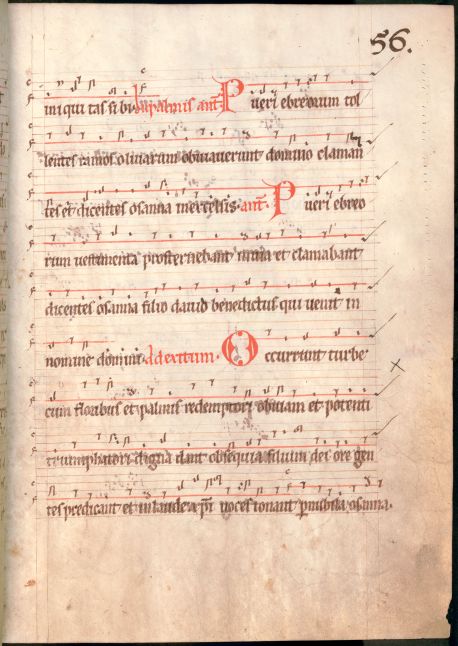 56.
iniqui tas si bi. In palmis ant. Pueri ebreorum tol
lentes ramos olivarum obviaverunt domino claman
tes et dicentes osanna in excelsis. ant. Pueri ebreo
rum vestimenta prosternebant in via et clamabant
dicentes osanna filio david benedictus qui venit in
nomine domini. Ad exitum. Occurrunt turbe
cum floribus et palmis redemptori obviam et potenti
triumphatori digna dant obsequia filium dei ore gen
tes predicant et in laude xpi voces tonant per nubila osanna.